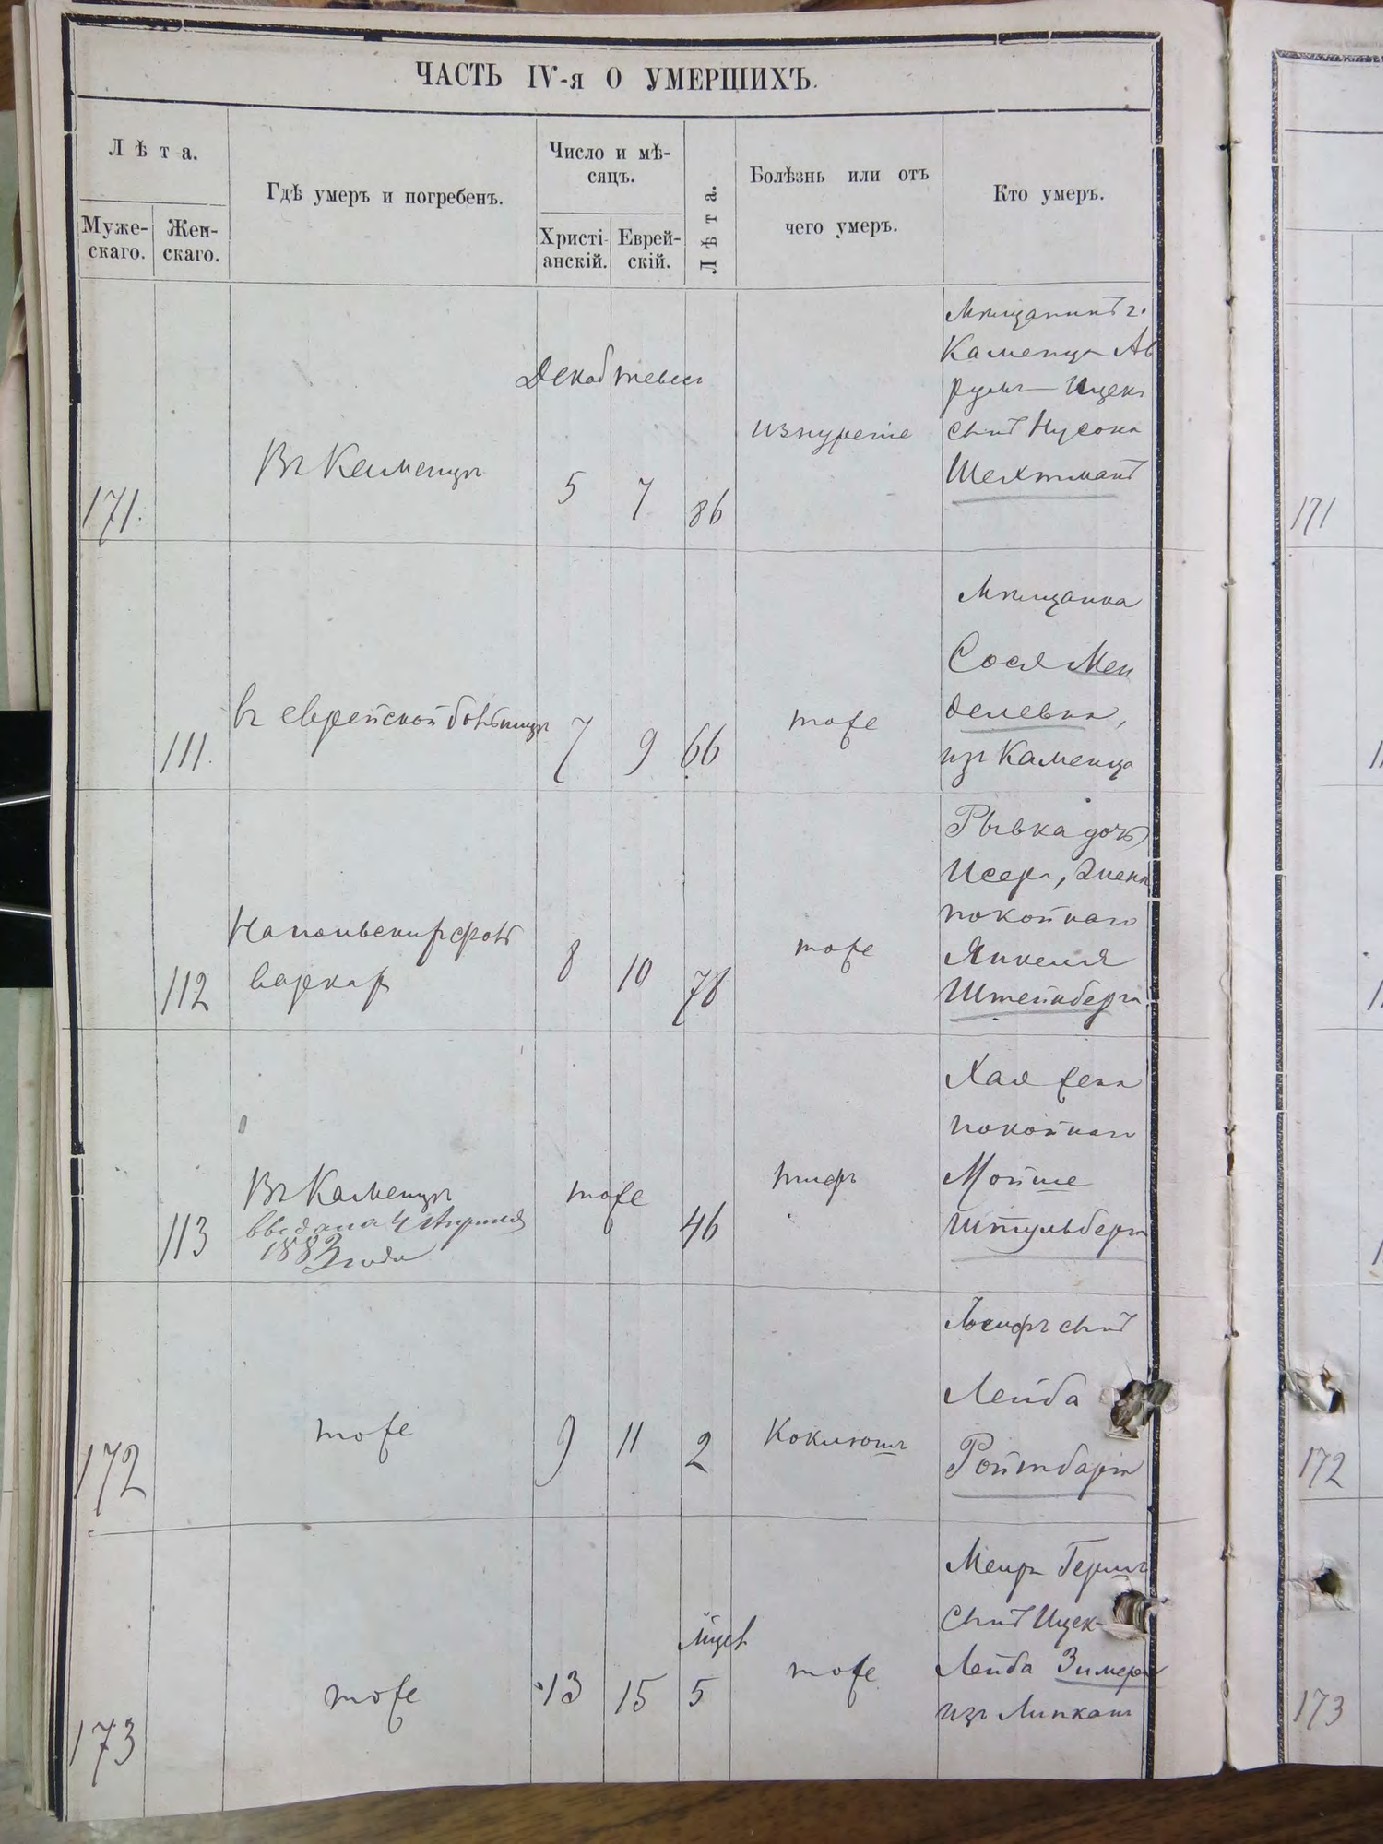 ЧАСТЬ IV-я О УМЕРШИХЪ.
Лѣта.
Муже-
скаго.
Жен-
скаго.
Гдѣ умеръ и погребенъ.
Число и мѣ-
сяцъ.
Христі-
анскій.
Еврей-
скій.
Лѣта.
Болѣзнь или отъ
чего умеръ.
Кто умеръ.
171.
Въ Каменцѣ
Декаб тевес
5
7
86
изнуреніе
Мѣщанинъ г.
Каменца Ав
румъ-Ицекъ
сынъ Нусона
Шехтманъ
171
111.
въ еврейской больницѣ
7
9
66
тоже
Мѣщанка
Сося Мен
делевна,
изъ Каменца
112
На польскихъ фоль
варкахъ
8
10
76
тоже
Рывка дочь
Исера, жена
покойнаго
Янкеля
Штейнберга.
113
Въ Каменцѣ
4 Апреля
1882 года
тоже
46
тифъ
Хая жена
покойнаго
Мойше
Штульберга
172
тоже
9
11
2
Коклюшъ
Іосифъ сынъ
Лейба
Ройтбарт
172
173
тоже
13
15
мцев
5
тоже
Меиръ Гершъ
сынъ Ицек-
Лейба Зимера
изъ Липканъ
173